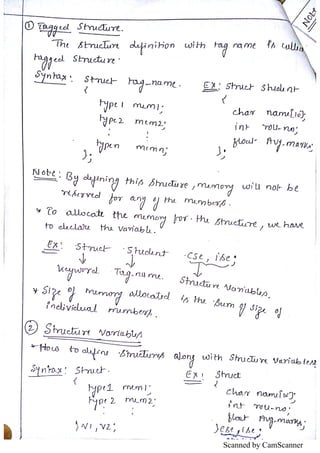 NOTE
① Tagged Structure.
The structure definition with tag name is called
tagged structure.
Syntax: struct tag_name.
{
type1 mem1;
type2 mem2;
:
:
typen memn;
};
Ex: struct student
{
char name[10];
int roll-no;
float Avg.marks;
};
Note: By defining this structure, memory will not be
reserved for any of the members.
* To allocate the memory for the structure, we have
to declare the variable.
Ex: struct student cse, ise;
↓ ↓
keyword Tag.name. structure variables.
* Size of memory allocated is the sum of size of
individual members.
② Structure Variables
* How to define structures along with structure variables
Syntax: struct.
{
type1 mem1;
type2 mem2;
:
} V1, V2;
Ex: struct
{
char name[10];
int roll-no;
float Avg.marks;
} cse, ise;
Scanned by CamScanner